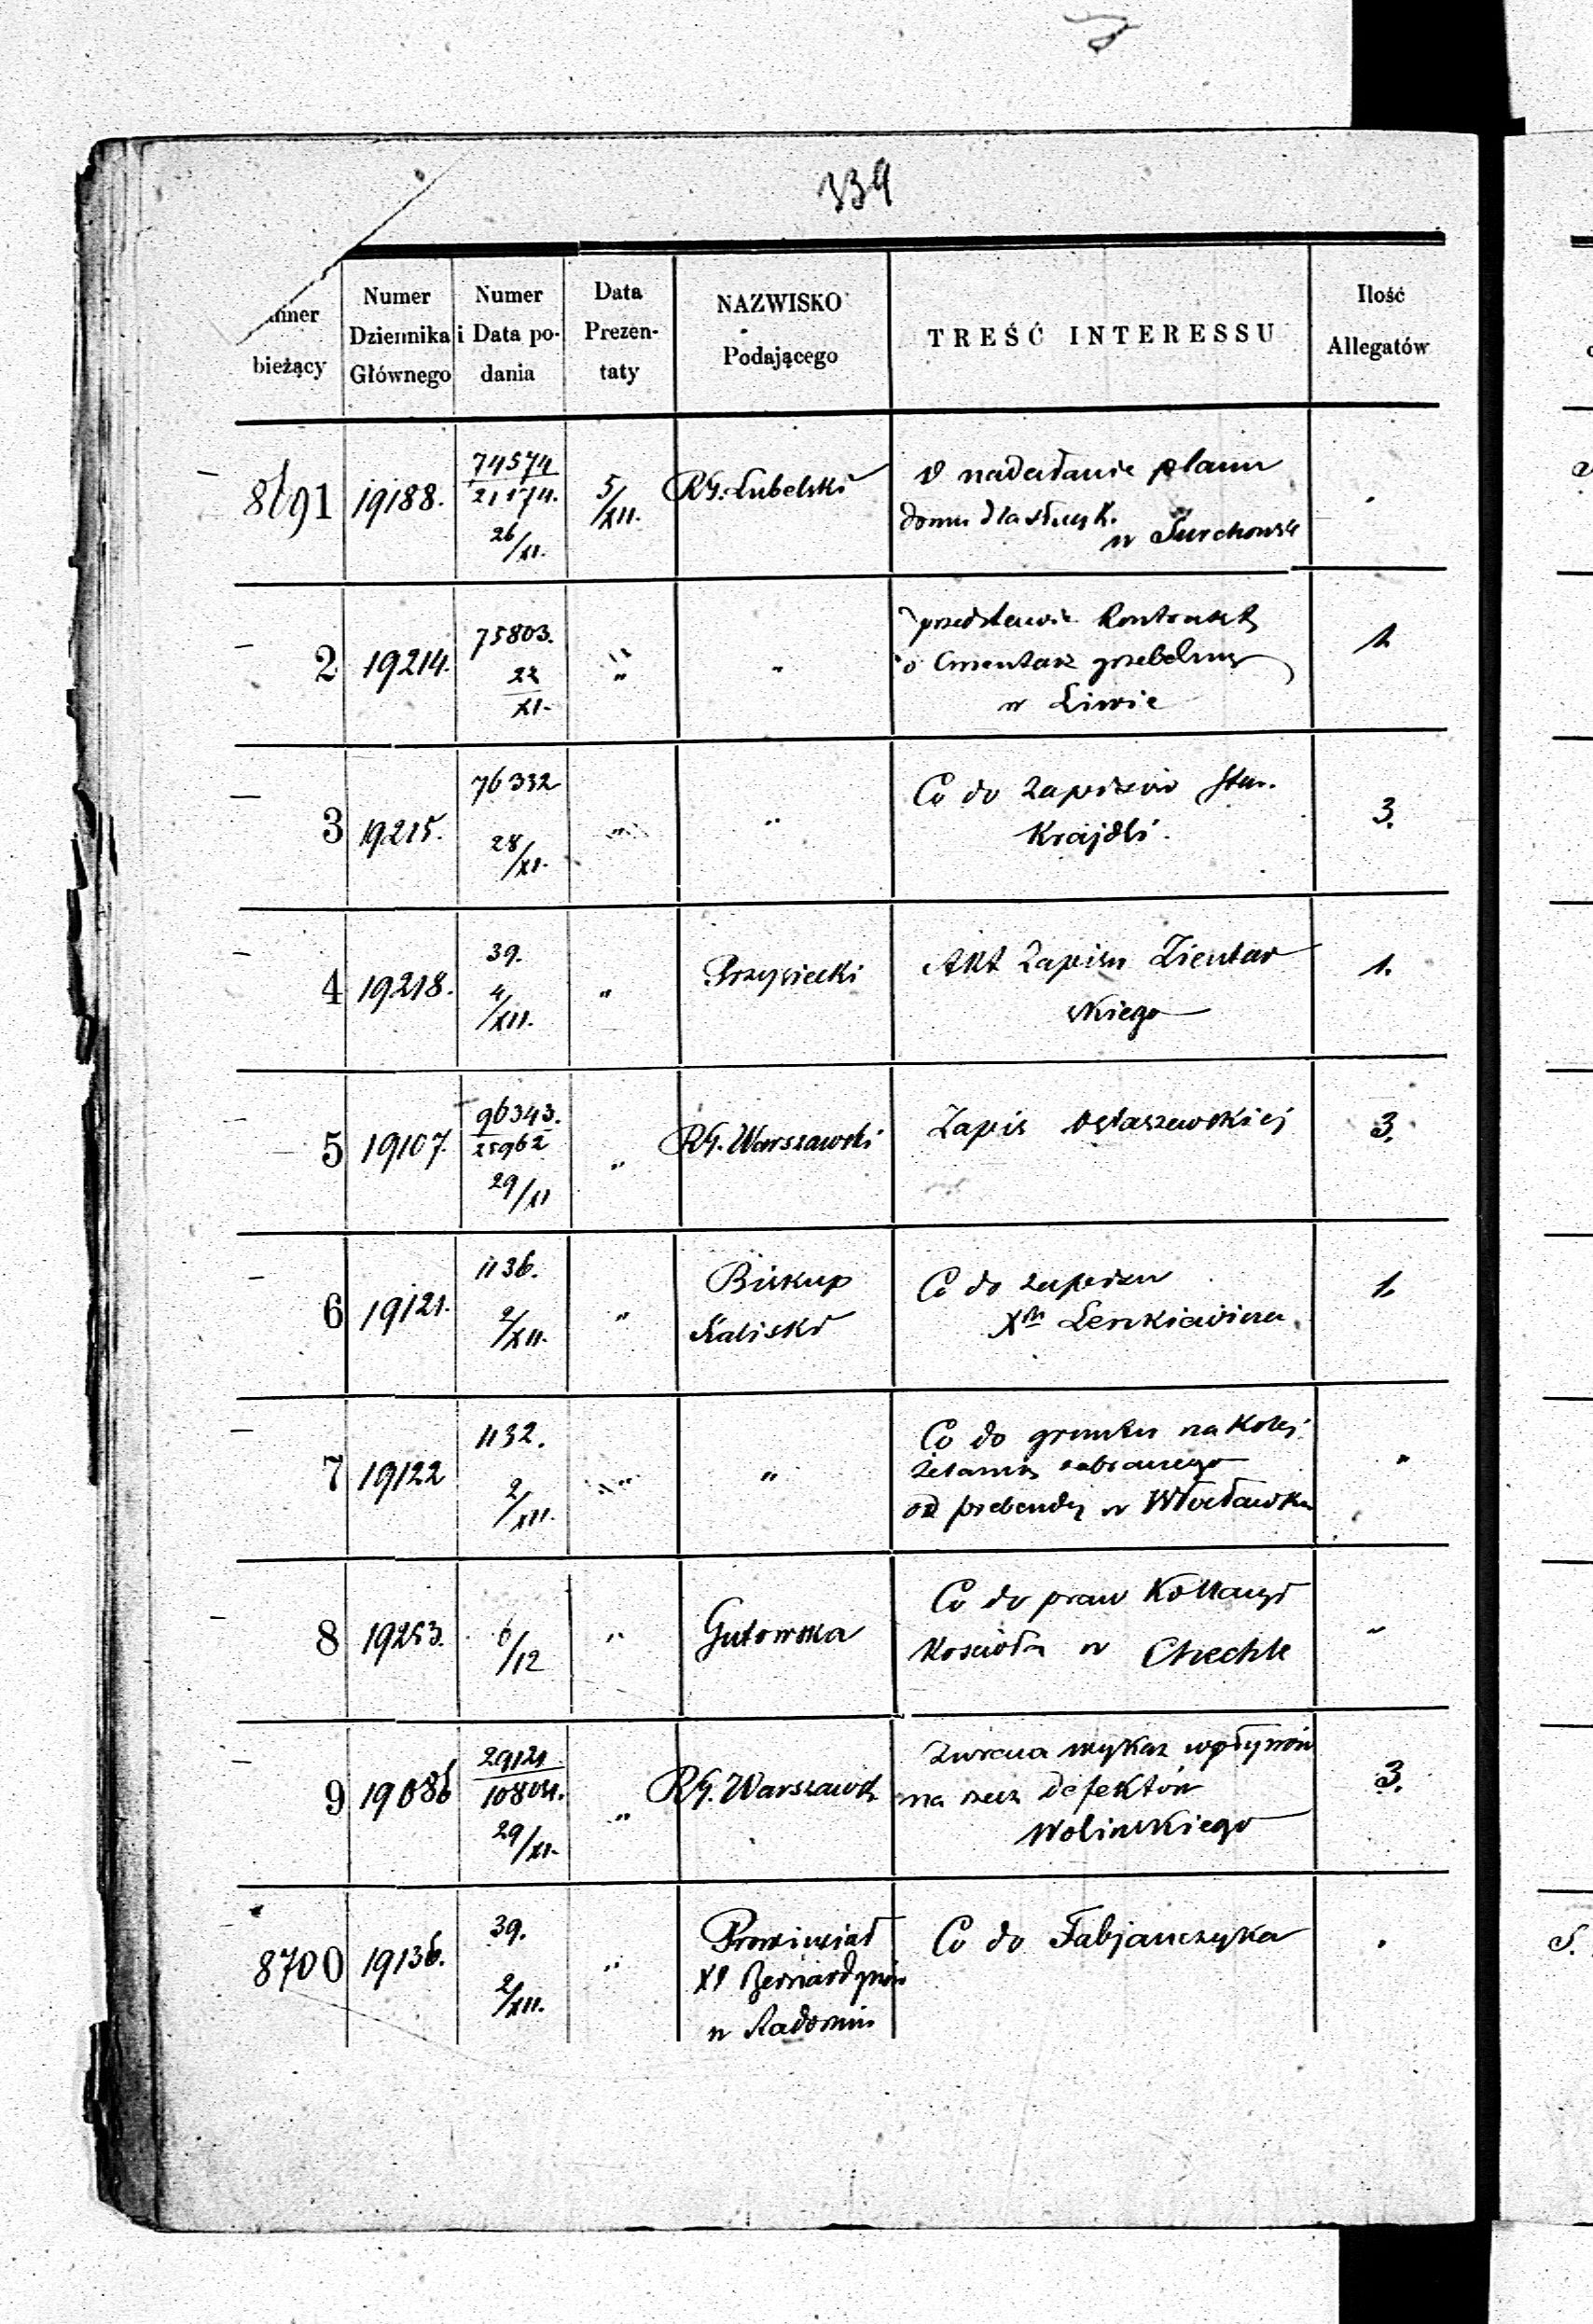 339
Numer bieżący | Numer Dziennika Głównego | Numer i Data podania | Data Prezentaty | NAZWISKO Podającego | TREŚĆ INTERESSU | Ilość Allegatów
8691 | 19188. | 74574 21174. 26/XI. | 5/XII. | RG. Lubelski | O nadesłanie planu
domu dla służ. k.
w Turchowie | .
2 | 19214. | 75803. 22/XI. | " | " | przedstawia Kontrakt
o Cmentarz grzebalny
w Liwie | 1.
3 | 19215. | 76332 28/XI. | " | " | Co do zapisów Stan.
Krajdli. | 3.
4 | 19218. | 39. 4/XII. | " | Przysiecki | Akt Zapisu Zientar
skiego | 1.
5 | 19107. | 96343. 25962 29/XI | " | RG. Warszawski | Zapis Ostaszewskiej | 3.
6 | 19121. | 1136. 2/XII. | " | Biskup
Kaliski | Co do zapisu
Xdza Lenkiewicza | 1.
7 | 19122 | 1132. 2/XII. | " | " | Co do gruntu na kolej
żelazną zabranego
od prebendy w Włocławku | "
8 | 19253. | 6/12 | " | Gutowska | Co do praw Kollacyi
Kościoła w Chechle | "
9 | 19086 | 29121 10804. 29/XI. | " | RG. Warszawsk. | Zwraca wykaz wpływów
na rzecz defektów
Wolińskiego | 3.
8700 | 19136. | 39. 2/XII. | " | Prowinciał
XX Bernardynów
w Radomiu | Co do Fabjanczyka | .